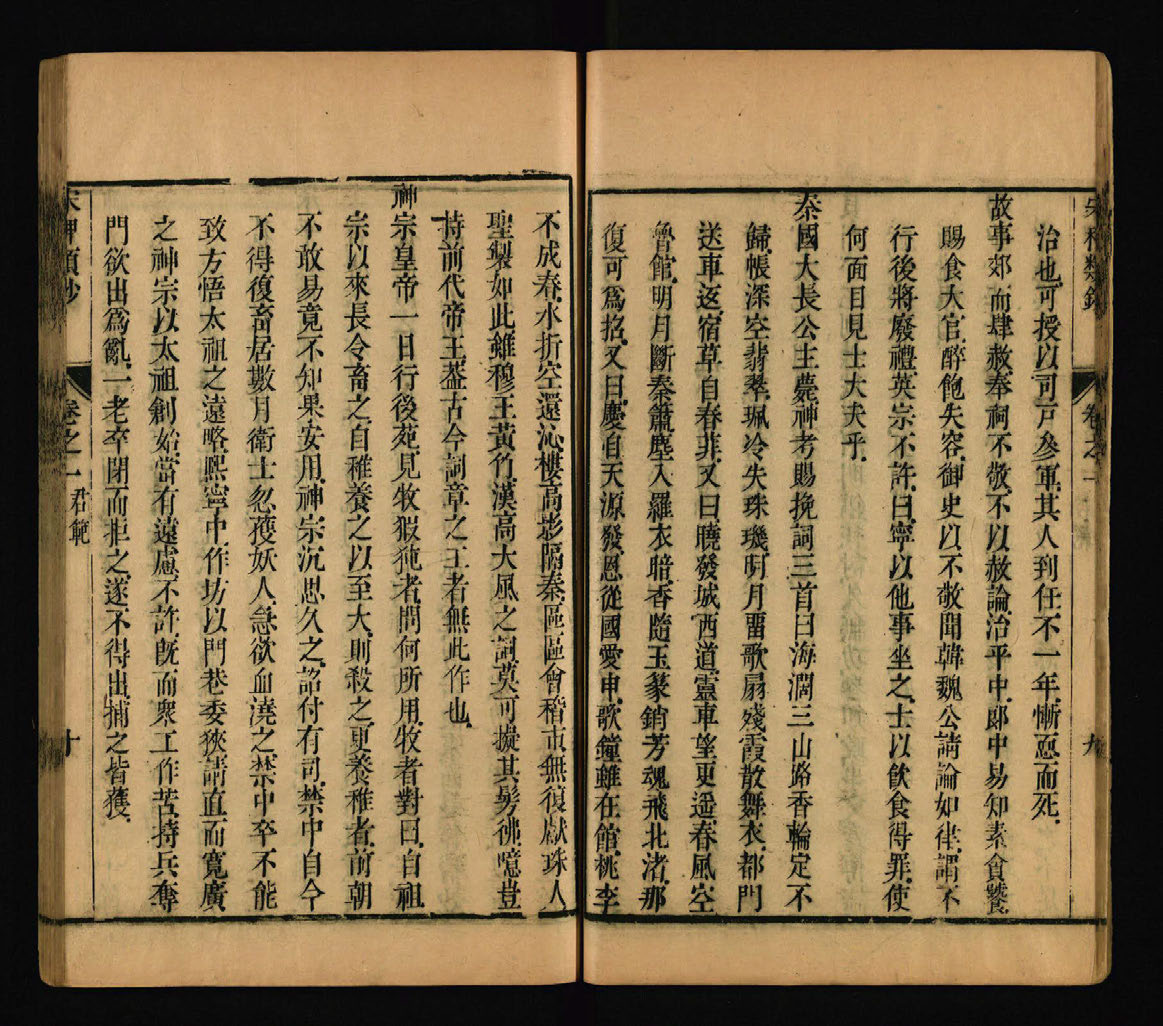 宋稗類鈔
卷之一
九
治也可授以司戸參軍其人到任不一年慚恧而死
故事郊而肆赦奉祠不敬不以赦論治平中郎中易知素貪饕
賜食大官醉飽失容御史以不敬聞韓魏公請論如律謂不
行後將廢禮英宗不許曰寧以他事坐之士以飲食得罪使
何面目見士大夫乎
秦國大長公主薨神考賜挽詞三首曰海濶三山路香輪定不
歸帳深空翡翠珮冷失珠璣明月畱歌扇殘霞散舞衣都門
送車返宿草自春菲又曰曉發城西道靈車望更遥春風空
魯館明月斷秦簫塵入羅衣暗香隨玉篆銷芳魂飛北渚那
復可爲招又曰慶自天源發恩從國愛申歌鐘雖在館桃李
不成春水折空還沁樓高影隔秦區區會稽市無復獻珠人
聖製如此雖穆王黃竹漢高大風之詞莫可擬其髣彿噫豈
特前代帝王葢古今詞章之王者無此作也
神宗皇帝一日行後苑見牧猳㹠者問何所用牧者對曰自祖
宗以來長令畜之自稚養之以至大則殺之更養稚者前朝
不敢易竟不知果安用神宗沉思久之詔付有司禁中自今
不得復畜居數月衛士忽獲妖人急欲血澆之禁中卒不能
致方悟太祖之遠略熙寧中作坊以門巷委狹請直而寬廣
之神宗以太祖創始當有遠慮不許旣而衆工作苦持兵奪
門欲出爲亂一老卒閉而拒之遂不得出捕之皆獲
宋稗類鈔
卷之一
君範
十